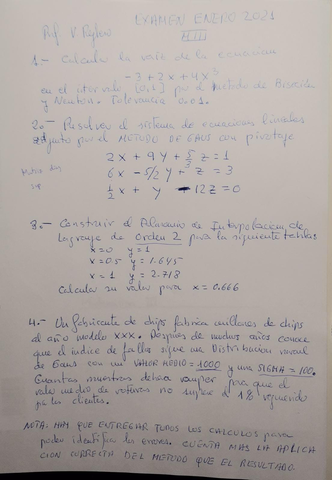 Prof. V.
EXAMEN ENERO 2021
M III
1.- Calcular la raiz de la ecuacion
-3 + 2x + 4x³
en el intervalo [0,1] por el Metodo de Bisección
y Newton. Tolerancia 0.01.
2.- Resolver el sistema de ecuaciones lineales
adjunto por el METODO DE GAUS con pivotaje
2x + 9y + 5/3 z = 1
6x - 5/2 y + z = 3
1/2 x + y - 12z = 0
3.- Construir el Polinomio de Interpolacion de
Lagrange de Orden 2 para la siguiente tabla
x=0 y=1
x=0.5 y=1.645
x=1 y=2.718
Calcular su valor para x=0.666
4.- Un fabricante de chips fabrica millones de chips
al año modelo XXX. Despues de muchos años conoce
que el indice de fallos sigue una Distribucion normal
de Gaus con un VALOR MEDIO=1000 y una SIGMA=100.
Cuantas muestras debera romper para que el
valor medio no supere el 18 requerido
los clientes.
NOTA: HAY QUE ENTREGAR TODOS LOS CALCULOS para
poder identificar los errores. CUENTA MAS LA APLICA
CION CORRECTA DEL METODO QUE EL RESULTADO.